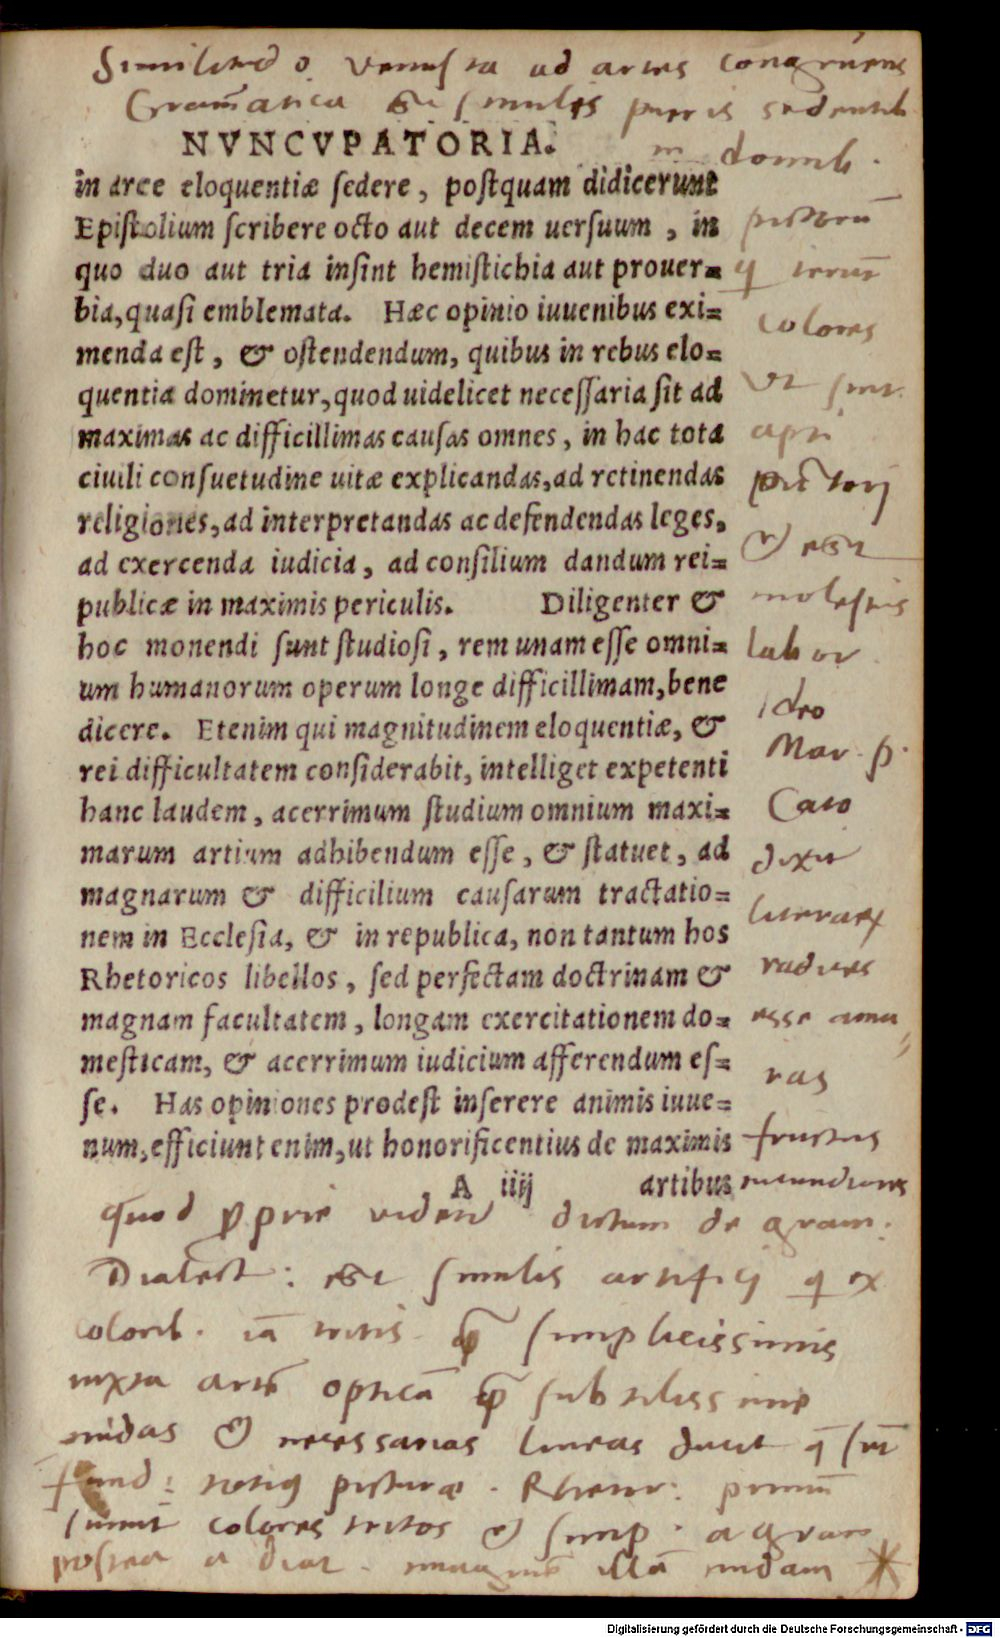 Similitudo venusta ad artes congruens
Gram̄atica est similis pueris sedentib
in domib.
NVNCVPATORIA.
in arce eloquentiæ sedere, postquam didicerunt
Epistolium scribere octo aut decem uersuum, in
quo duo aut tria insint hemistichia aut prouer=
bia, quasi emblemata. Hæc opinio iuuenibus exi=
menda est, & ostendendum, quibus in rebus elo=
quentia dominetur, quod uidelicet necessaria sit ad
maximas ac difficillimas causas omnes, in hac tota
ciuili consuetudine uitæ explicandas, ad retinendas
religiones, ad interpretandas ac defendendas leges,
ad exercenda iudicia, ad consilium dandum rei=
publicæ in maximis periculis. Diligenter &
hoc monendi sunt studiosi, rem unam esse omni=
um humanorum operum longe difficillimam, bene
dicere. Etenim qui magnitudinem eloquentiæ, &
rei difficultatem considerabit, intelliget expetenti
hanc laudem, acerrimum studium omnium maxi=
marum artium adhibendum esse, & statuet, ad
magnarum & difficilium causarum tractatio=
nem in Ecclesia, & in republica, non tantum hos
Rhetoricos libellos, sed perfectam doctrinam &
magnam facultatem, longam exercitationem do=
mesticam, & acerrimum iudicium afferendum es=
se. Has opiniones prodest inserere animis iuue=
num, efficiunt enim, ut honorificentius de maximis
A iiij artibus
pictorū
q̄ terunt
colores
ut sint
apti
pictori
et est
molestus
labor
Ideo
Mar. p.
Cato
dixit
literarꝝ
radices
esse ama
ras
fructus
iucundiores
quod ꝓprie videtur dictum de gram.
Dialect: est similis artifici q ex
colorib. iā tritis simplicissimis
iuxta artē opticā subtilissime
nudas et necessarias lineas ducit q̄ sūt
fund: totius picturæ. Rhetor: primū
sumit colores tritos et simp. a gram
postea a dial. imaginē illā nudam